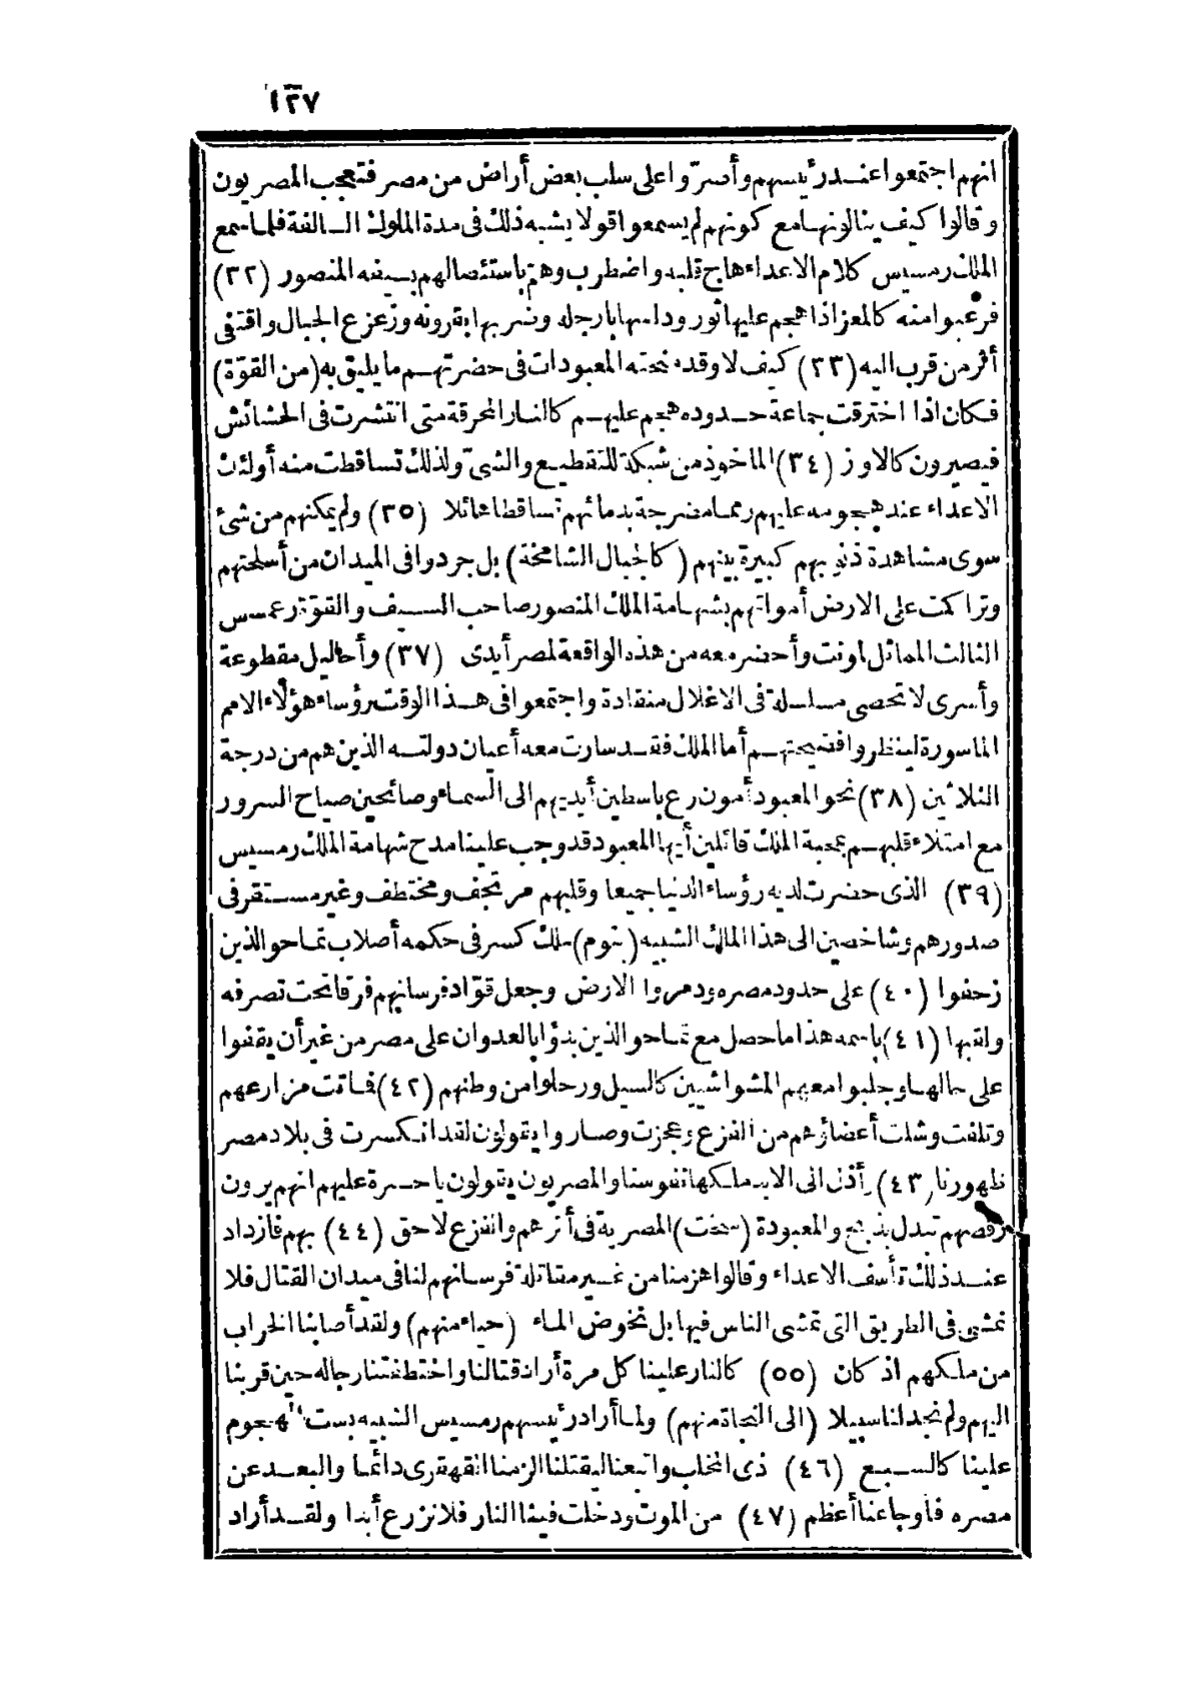 ١٣٧
انهم اجتمعوا عند رئيسهم وأصرّوا على سلب بعض أراض من مصر فتعجب المصريون
وقالوا كيف ينالونها مع كونهم لم يسمعوا قولا يشبه ذلك فى مدة الملوك السالفة فلما سمع
الملك رمسيس كلام الاعداء هاج قلبه واضطرب وهمّ باستئصالهم بسيفه المنصور (٣٢)
فرعبوا منه كالمعز اذا هجم عليها ثور وداسها بارجله وضربها بقرونه وزعزع الجبال واقتفى
أثر من قرب اليه (٣٣) كيف لا وقد منحته المعبودات فى حضرتهم ما يليق به (من القوّة)
فكان اذا اخترقت جماعة حدوده هجم عليهم كالنار المحرقة متى انتشرت فى الحشائش
فيصيرون كالاوز (٣٤) الماخوذ من شبكة للتقطيع والشىّ ولذلك تساقطت منه أولئك
الاعداء عند هجومه عليهم رمما مضرجة بدمائهم تساقطا هائلا (٣٥) ولم يمكنهم من شئ
سوى مشاهدة ذنوبهم كبيرة بينهم (كالجبال الشامخة) بل جردوا فى الميدان من أسلحتهم
وتراكمت على الارض أمواتهم بشهامة الملك المنصور صاحب السيف والقوّة رعمسس
الثالث المماثل لمونت وأحضر معه من هذه الواقعة لمصر أيدى (٣٧) وأحاليل مقطوعة
وأسرى لا تحصى مسلسلة فى الاغلال منقادة واجتمعوا فى هذا الوقت رؤساء هؤلاء الامم
الماسورة لينظروا فضيحتهم أما الملك فقد سارت معه أعيان دولته الذين هم من درجة
الثلاثين (٣٨) نحو المعبود أمون رع باسطين أيديهم الى السماء وصائحين صياح السرور
مع امتلاء قلبهم بمحبة الملك قائلين أيها المعبود قد وجب علينا مدح شهامة الملك رمسيس
(٣٩) الذى حضرت لديه رؤساء الدنيا جميعا وقلبهم مرتجف ومختطف وغير مستقر فى
صدورهم وشاخصين الى هذا الملك الشبيه (بتوم) ملك كسر فى حكمه أصلاب تماحو الذين
زحفوا (٤٠) على حدود مصره ودمروا الارض وجعل قوّاد فرسانهم فرقا تحت تصرفه
ولقبها (٤١) باسمه هذا ما حصل مع تماحو الذين بدؤا بالعدوان على مصر من غير أن يقفوا
على حالها وجلبوا معهم المشواشيين كالسيل ورحلوا من وطنهم (٤٢) فماتت مزارعهم
وتلفت وشلت أعضاؤهم من الفزع وعجزت وصاروا يقولون لقد انكسرت فى بلاد مصر
ظهورنا (٤٣) أذن الى الابد ملكها نفوسنا والمصريون يقولون يا حسرة عليهم انهم يرون
رقصهم تبدل بذبح والمعبودة (سخت) المصرية فى أثرهم والفزع لاحق (٤٤) بهم فازداد
عند ذلك تأسف الاعداء وقالوا هزمنا من غير مقاتلة فرسانهم لنا فى ميدان القتال فلا
نمشى فى الطريق التى تمشى الناس فيها بل نخوض الماء (حياء منهم) ولقد أصابنا الخراب
من ملكهم اذ كان (٥٥) كالنار علينا كل مرة أراد قتالنا واختطفتنا رجاله حين قربنا
اليهم ولم نجد لنا سبيلا (الى النجاة منهم) ولما أراد رئيسهم رمسيس الشبيه بست الهجوم
علينا كالسبع (٤٦) ذى المخلاب واتبعنا ليقتلنا الزمنا القهقرى دائما والبعد عن
مصره فأوجاعنا أعظم (٤٧) من الموت ودخلت فينا النار فلا نزرع أبدا ولقد أراد